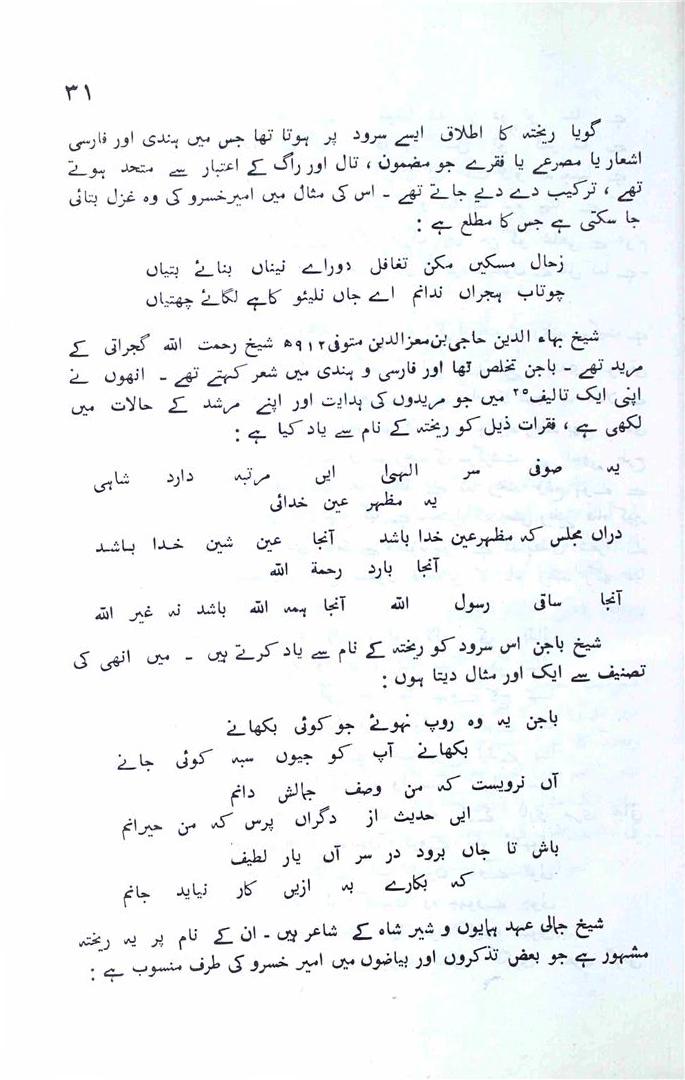 ۳۱
گویا ریختہ کا اطلاق ایسے سرود پر ہوتا تھا جس میں ہندی اور فارسی
اشعار یا مصرعے یا فقرے جو مضمون ، تال اور راگ کے اعتبار سے متحد ہوتے
تھے ، ترکیب دے دیے جاتے تھے ۔ اس کی مثال میں امیر خسرو کی وہ غزل بتائی
جا سکتی ہے جس کا مطلع ہے :
زحال مسکیں مکن تغافل دوراے نیناں بنائے بتیاں
چوتاب ہجراں ندانم اے جاں نلیئو کاہے لگائے چھتیاں
شیخ بہاء الدین حاجی بن معزالدین متوفی ۹۱۲ھ شیخ رحمت اللہ گجراتی کے
مرید تھے ۔ باجن تخلص تھا اور فارسی و ہندی میں شعر کہتے تھے ۔ انھوں نے
اپنی ایک تالیف۲۵ میں جو مریدوں کی ہدایت اور اپنے مرشد کے حالات میں
لکھی ہے ، فقرات ذیل کو ریختہ کے نام سے یاد کیا ہے :
یہ صوفی سر الہیٰ ایں مرتبہ دارد شاہی
یہ مظہر عین خدائی
دراں مجلس کہ مظہر عین خدا باشد آنجا عین شین خدا باشد
آنجا بارد رحمة اللہ
آنجا ساقی رسول اللہ آنجا ہمہ اللہ باشد نہ غیر اللہ
شیخ باجن اس سرود کو ریختہ کے نام سے یاد کرتے ہیں ۔ میں انھی کی
تصنیف سے ایک اور مثال دیتا ہوں :
باجن یہ وہ روپ نہوئے جو کوئی بکھانے
بکھانے آپ کو جیوں سبہ کوئی جانے
آں نرویست کہ من وصف جالش دانم
ایں حدیث از دگراں پرس کہ من حیرانم
باش تا جاں برود در سر آں یار لطیف
کہ بکارے بہ ازیں کار نیاید جانم
شیخ جالی عہد ہمایوں و شیر شاہ کے شاعر ہیں ۔ ان کے نام پر یہ ریختہ
مشہور ہے جو بعض تذکروں اور بیاضوں میں امیر خسرو کی طرف منسوب ہے :